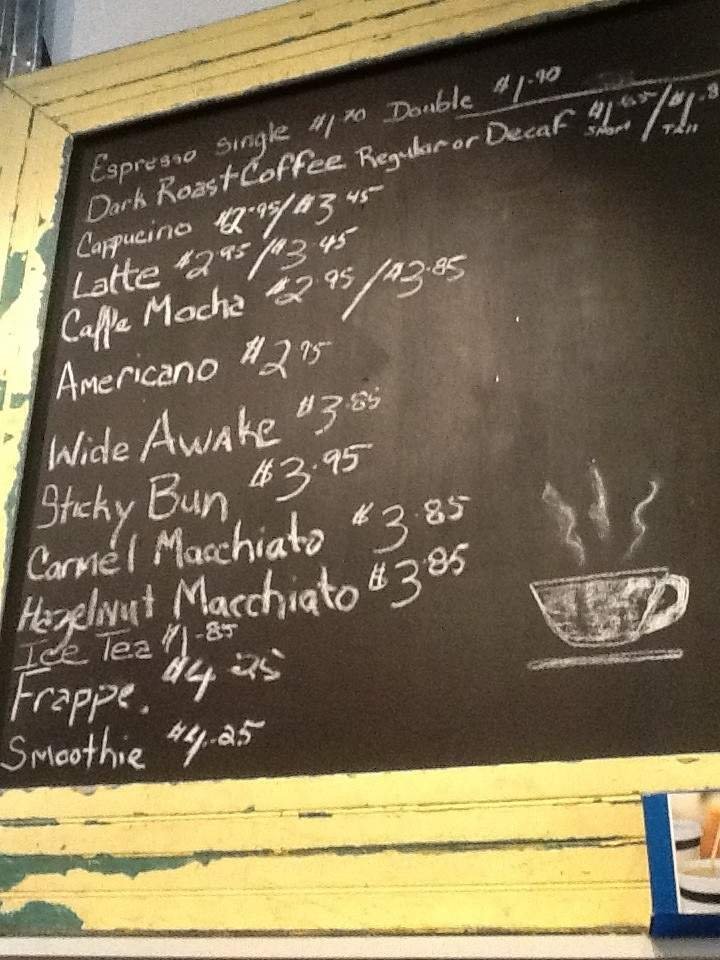 Espresso single $1.70 Double $1.90
Dark Roast Coffee Regular or Decaf $1.65/$1.8
Short Tall
Cappucino $2.95/$3.45
Latte $2.95/$3.45
Caffe Mocha $2.95/$3.85
Americano $2.95
Wide Awake $3.85
Sticky Bun $3.95
Carmel Macchiato $3.85
Hazelnut Macchiato $3.85
Ice Tea $1.85
Frappe. $4.25
Smoothie $4.25